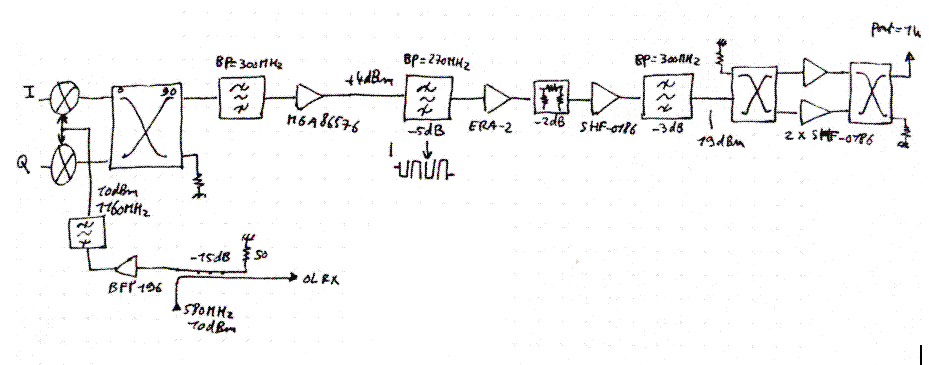 Pout=1W
BP=300MHz
BP=270MHz
BP=300MHz
+4dBm
I
0
90
MGA86576
-5dB
ERA-2
-2dB
SHF-0186
-3dB
19dBm
2 x SHF-0186
Q
10dBm
1160MHz
-15dB
50
BFP196
OL RX
580MHz
10dBm